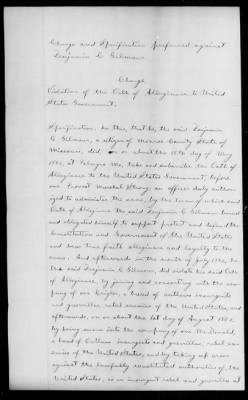 Charge and Specification preferred against
Benjamin C Gilman
Charge
Violation of the Oath of Allegiance to United
States Government.
Specification. In this, that he, the said Benjamin
C Gilman, a citizen of Monroe County State of
Missouri, did, on or about the 18th day of May
1862, at Palmyra Mo, take and subscribe the Oath of
Allegiance to the United States Government, before
one Provost Marshal Strong, an officer duly author-
ized to administer the same, by the terms of which said
Oath of Allegiance the said Benjamin C Gilman bound
and obligated himself to support protect and defend the
Constitution and Government of the United States
and bear true faith allegiance and loyalty to the
same. And afterwards in the month of July 1862, he
the said Benjamin C Gilman, did violate his said Oath
of Allegiance, by joining and consorting with the com-
pany of one a band of outlaws insurgents
and guerrillas, rebel enemies of the United States, and
afterwards, on or about the 1st day of August 1862
by being sworn into the company of one McDonald,
a band of Outlaws insurgents and guerrillas, rebel ene-
mies of the United States, and by taking up arms
against the lawfully constituted authorities of, the
United States, as an insurgent rebel and guerrilla at